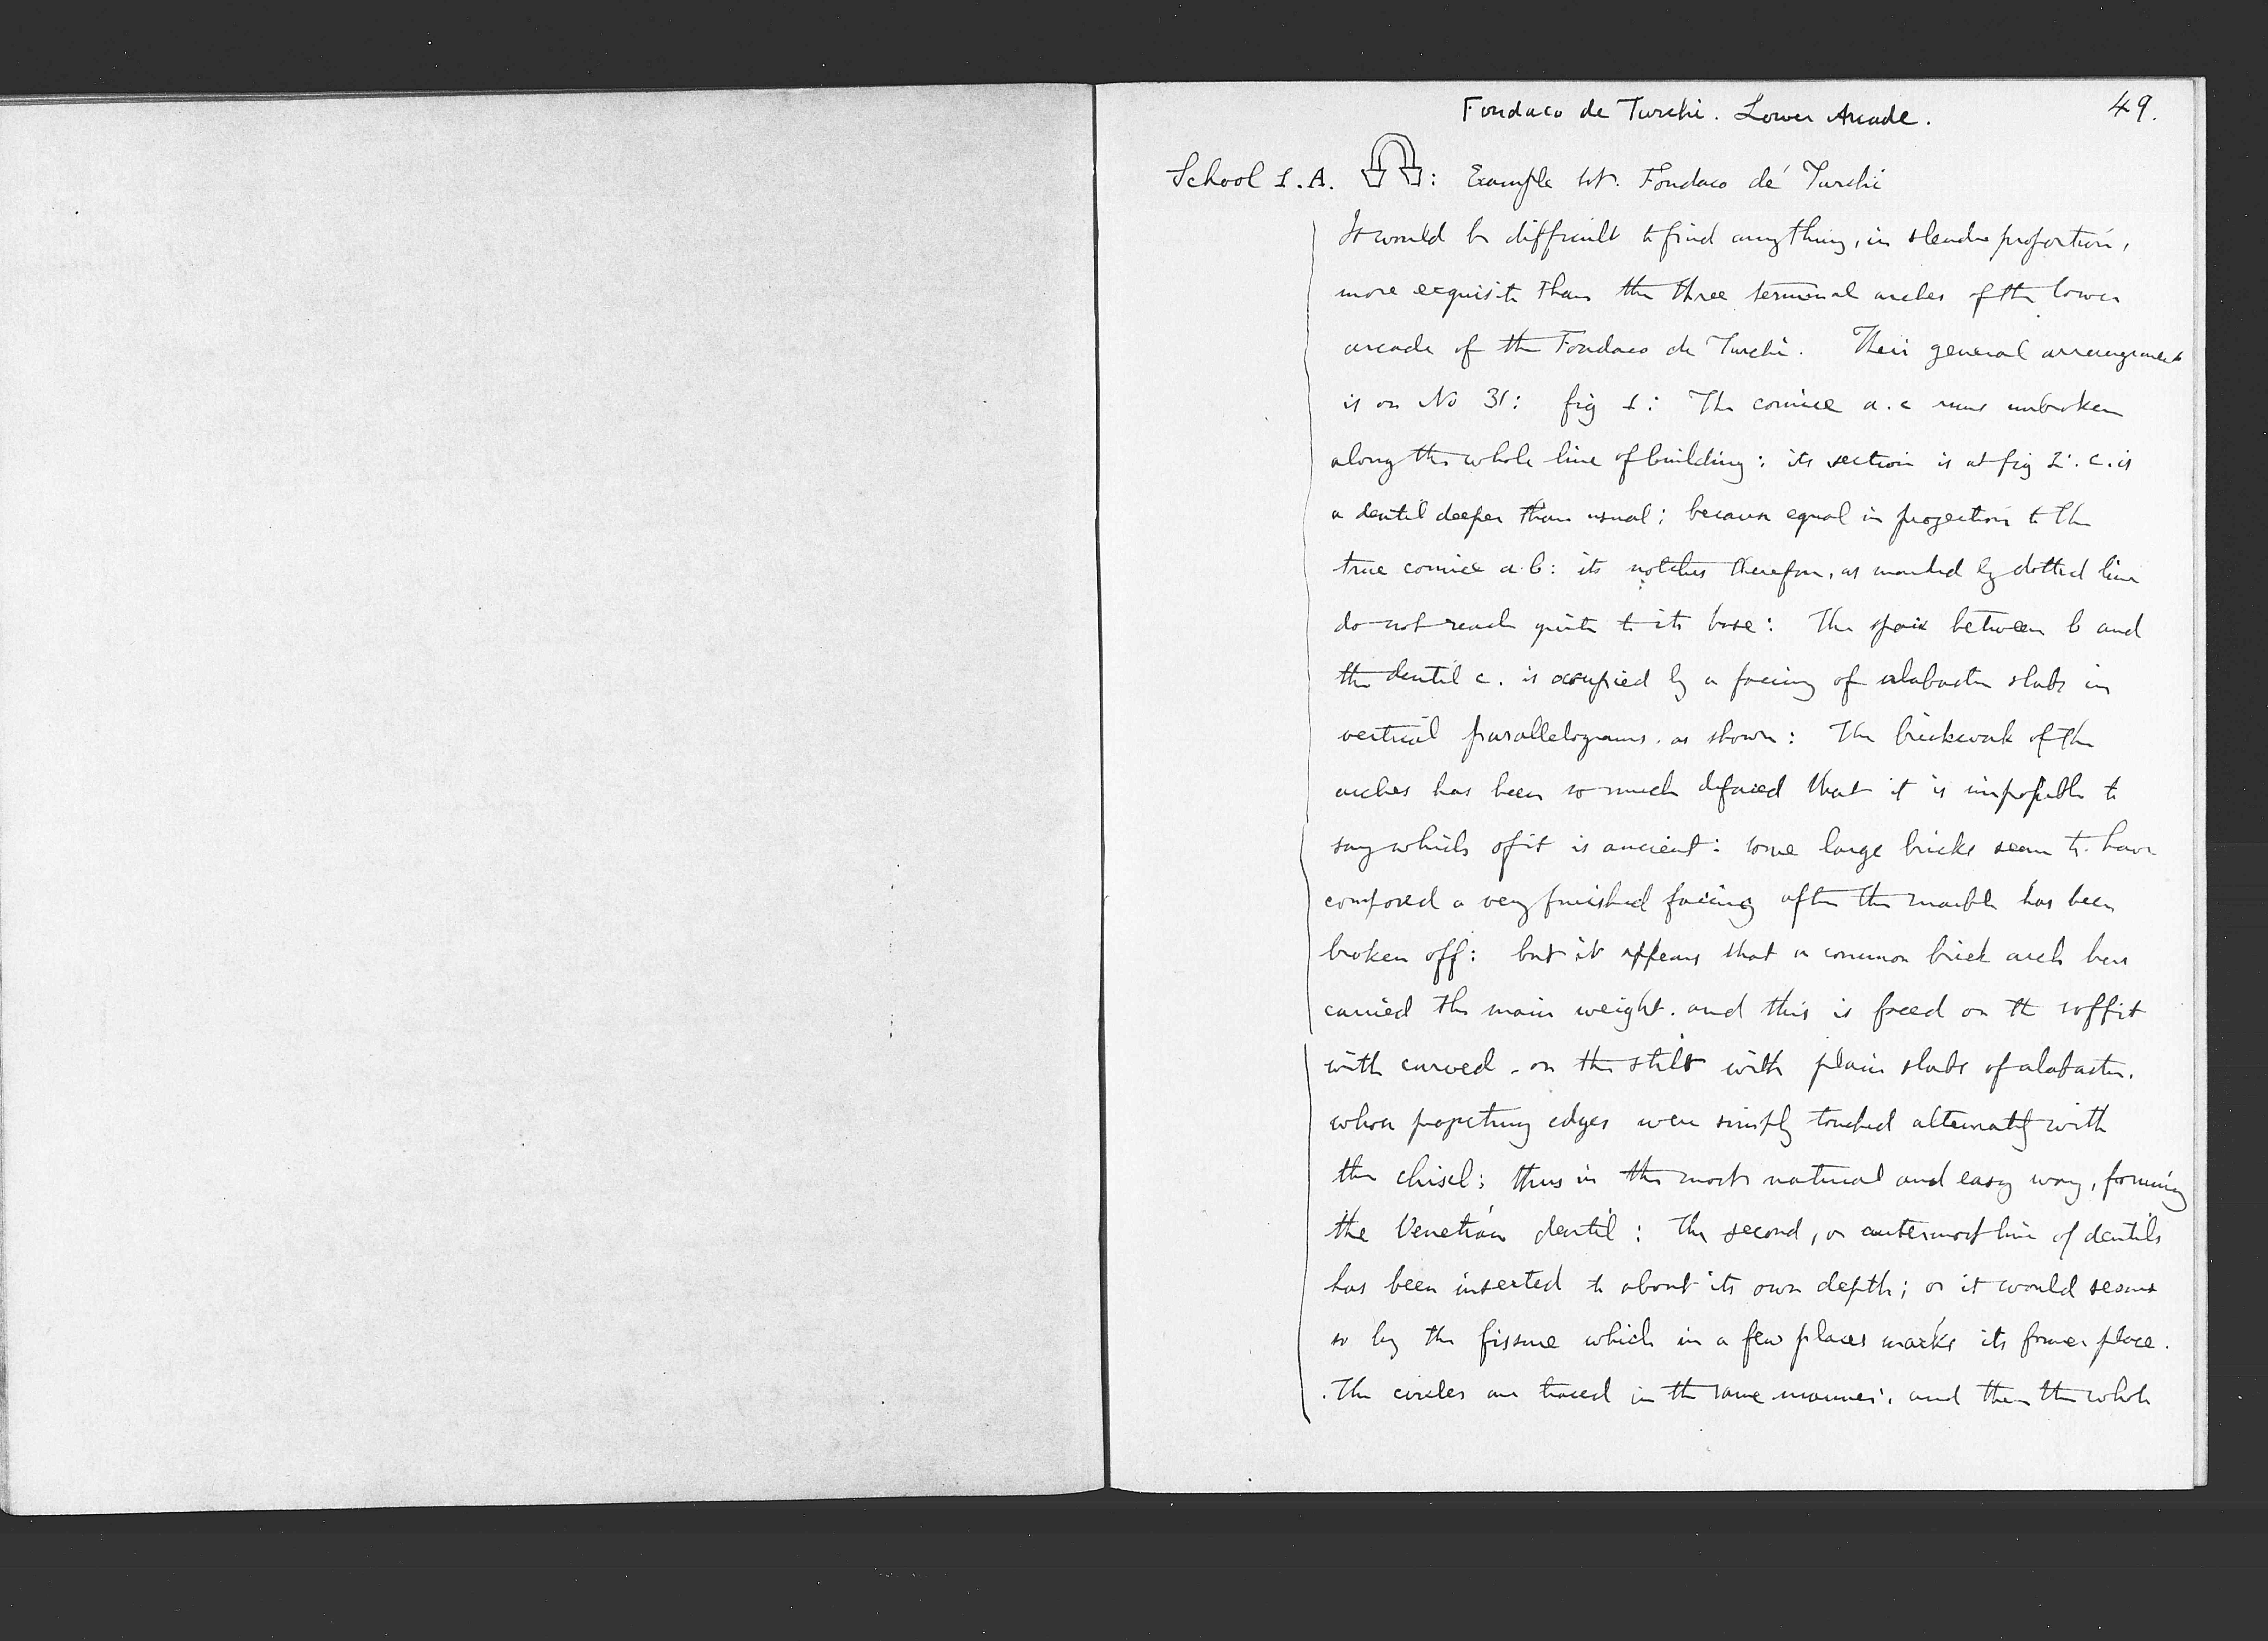 Fondaco de Turchi. Lower Arcade.
49.
School 1. A. : Example 1st. Fondaco de' Turchi
It would be difficult to find anything, in slender proportion,
more exquisite than the three terminal arches of the lower
arcade of the Fondaco de Turchi. Their general arrangement
is on No 31: fig 1: The cornice a.c runs unbroken
along the whole line of building: its section is at fig 2. c. is
a dentil deeper than usual; because equal in projection to the
true cornice a.b: its notches therefore, as marked by dotted line
do not reach quite to its base: The space between b and
the dentil c. is occupied by a facing of alabaster slabs in
vertical parallelograms. as shown: The brickwork of the
arches has been so much defaced that it is impossible to
say which of it is ancient: some large bricks seem to have
composed a very finished facing after the marble has been
broken off: but it appears that a common brick arch has
carried the main weight. and this is faced on the soffit
with curved - on the stilt with plain slabs of alabaster.
whose projecting edges were simply touched alternately with
the chisel; thus in the most natural and easy way, forming
the Venetian dentil: The second, or outermost line of dentils
has been inserted to about its own depth; or it would seem
so by the fissure which in a few places marks its former place.
. The circles are traced in the same manner, and then the whole